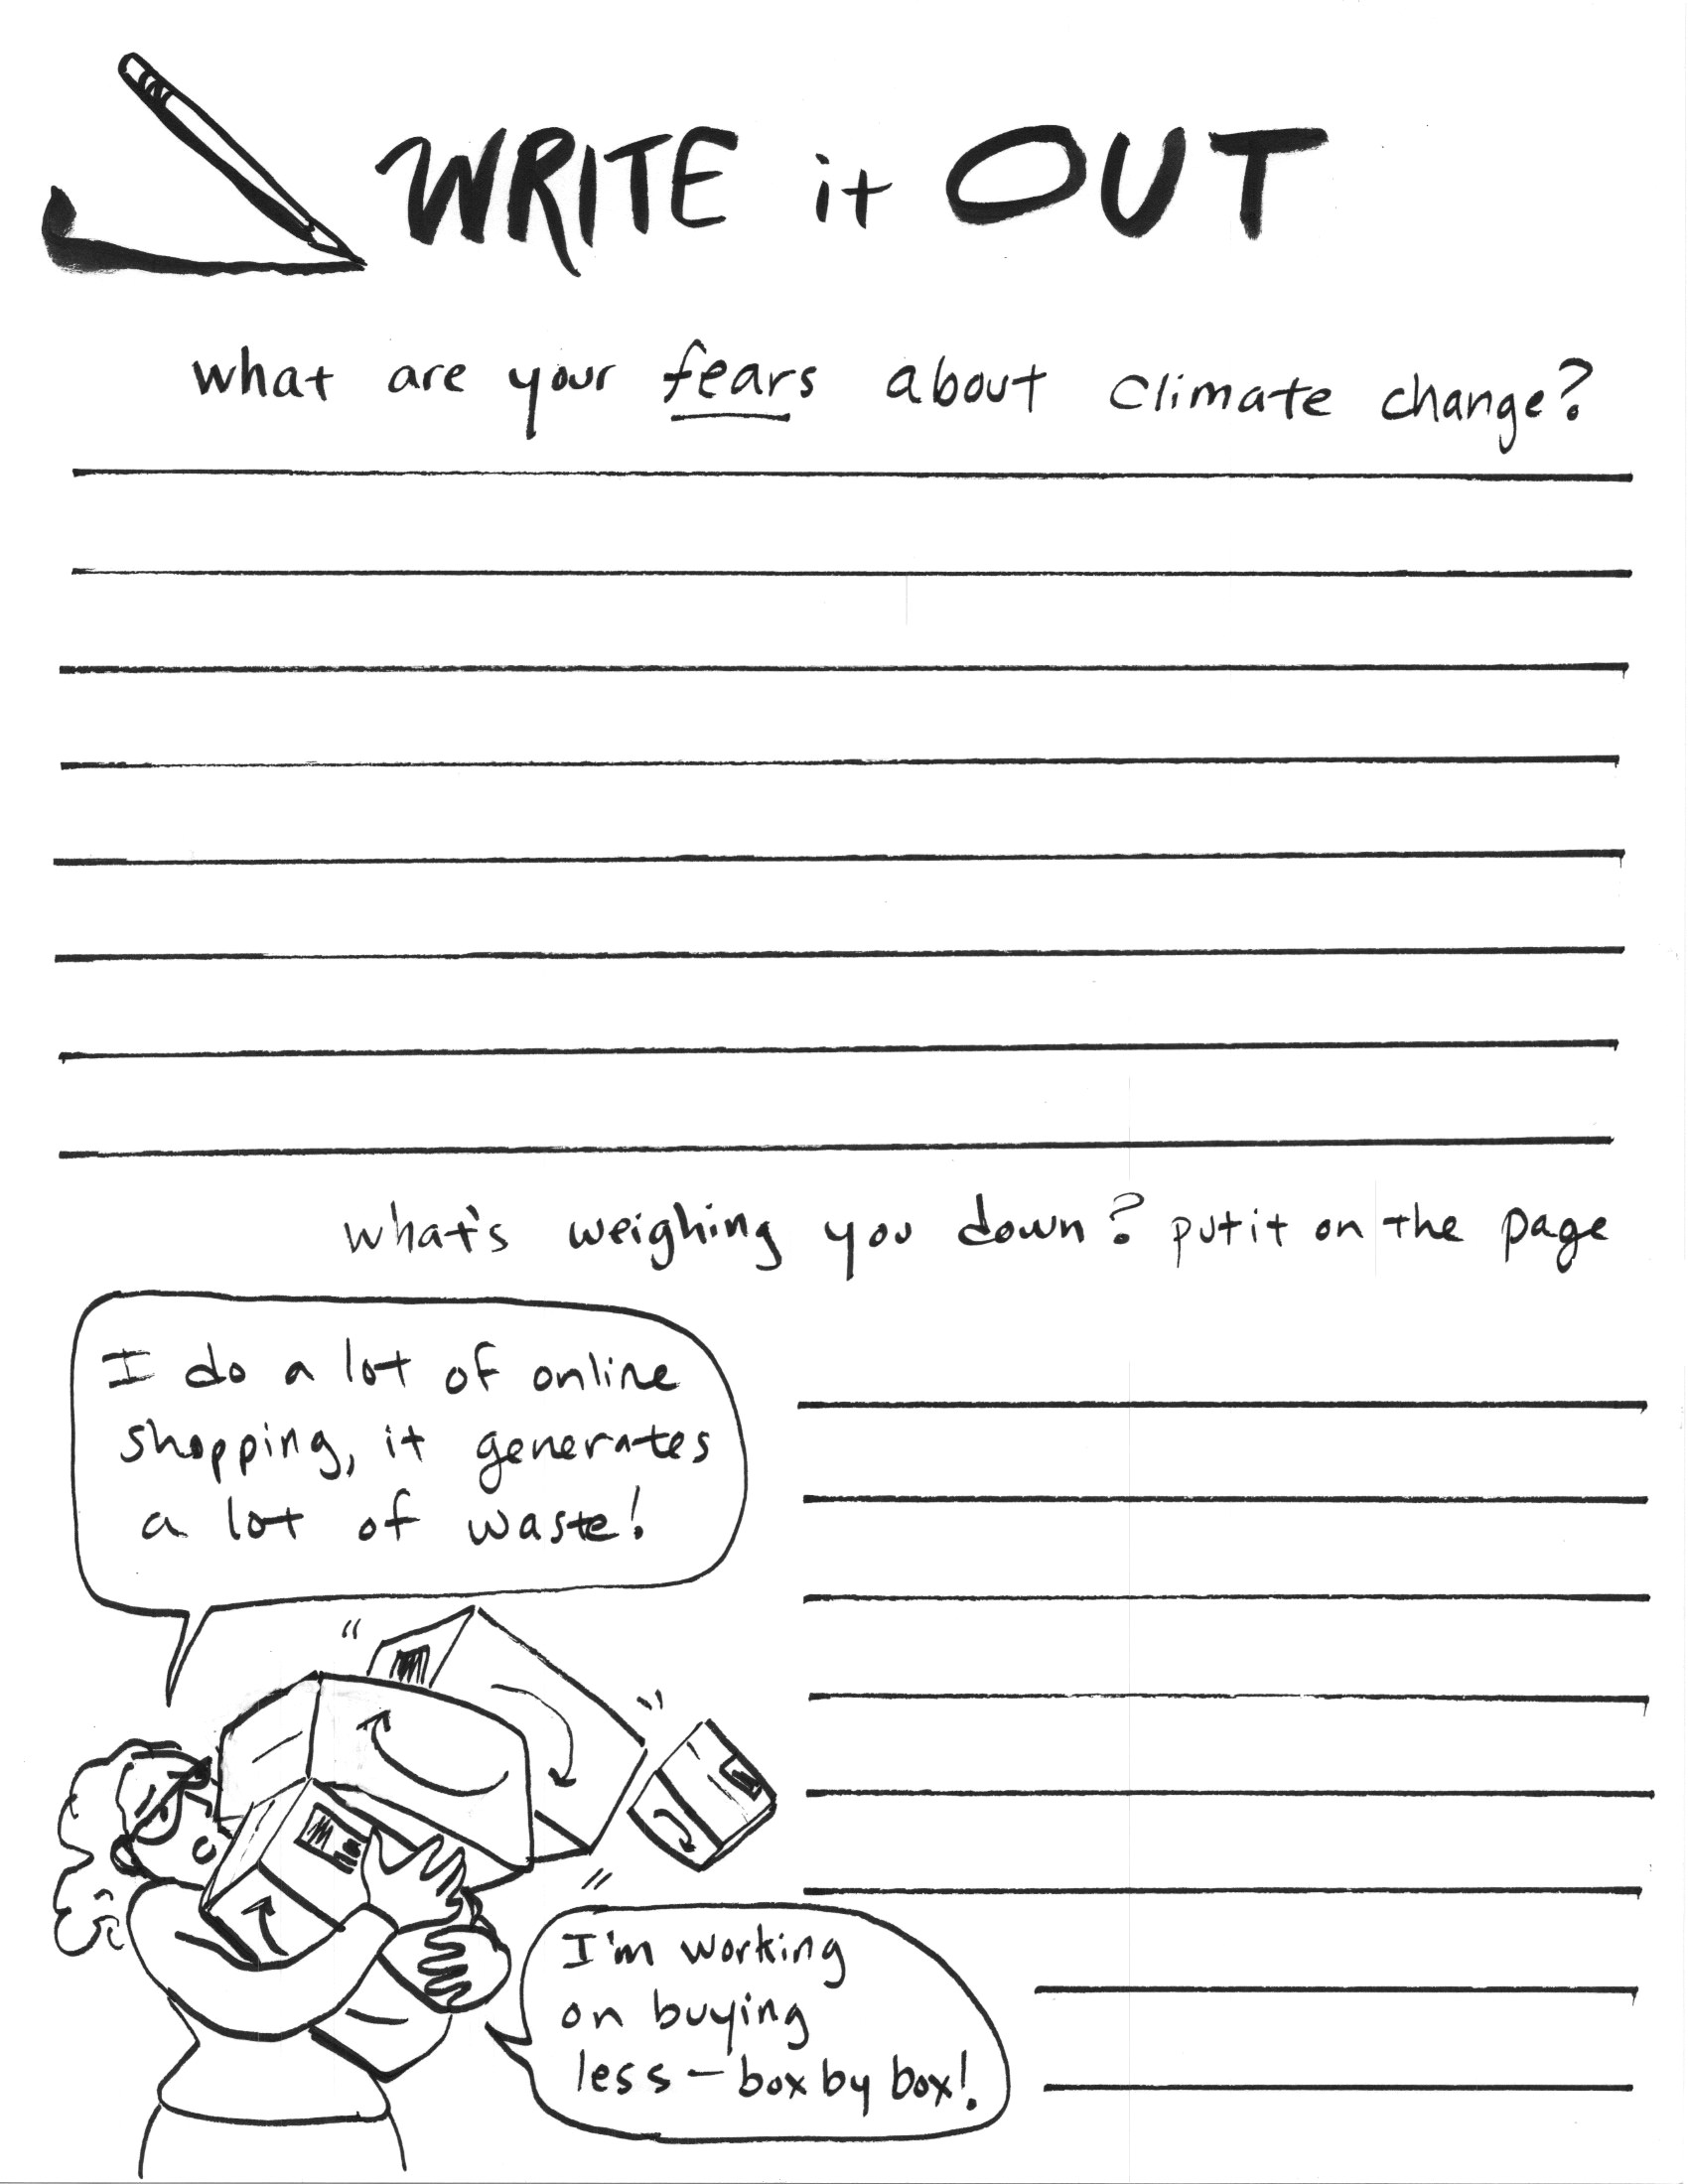 WRITE it OUT
what are your fears about climate change?
what's weighing you down? put it on the page
I do a lot of online
shopping, it generates
a lot of waste!
I'm working
on buying
less – box by box!